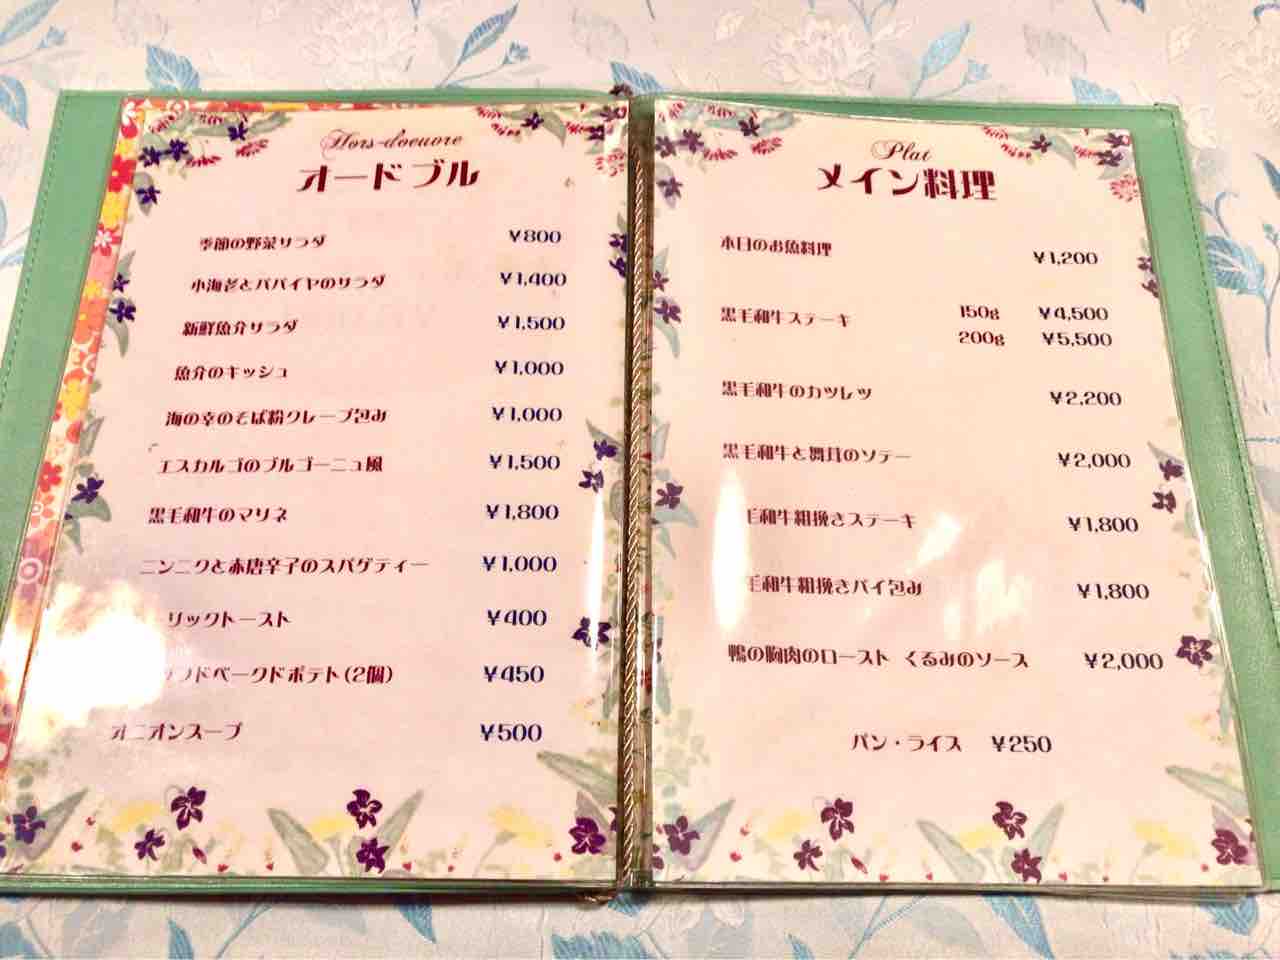 Hors-d'oeuvre
オードブル
季節の野菜サラダ ¥800
小海老とパパイヤのサラダ ¥1,400
新鮮魚介サラダ ¥1,500
魚介のキッシュ ¥1,000
海の幸のそば粉クレープ包み ¥1,000
エスカルゴのブルゴーニュ風 ¥1,500
黒毛和牛のマリネ ¥1,800
ニンニクと赤唐辛子のスパゲティー ¥1,000
リックトースト ¥400
ドベークドポテト(2個) ¥450
オニオンスープ ¥500
Plat
メイン料理
本日のお魚料理 ¥1,200
黒毛和牛ステーキ 150g ¥4,500
200g ¥5,500
黒毛和牛のカツレツ ¥2,200
黒毛和牛と舞茸のソテー ¥2,000
毛和牛粗挽きステーキ ¥1,800
毛和牛粗挽きパイ包み ¥1,800
鴨の胸肉のロースト くるみのソース ¥2,000
パン・ライス ¥250